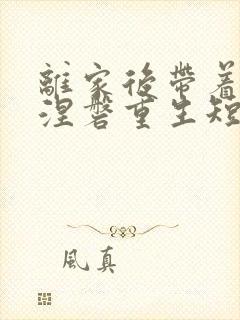 離家後帶着
涅磐重生短
風真